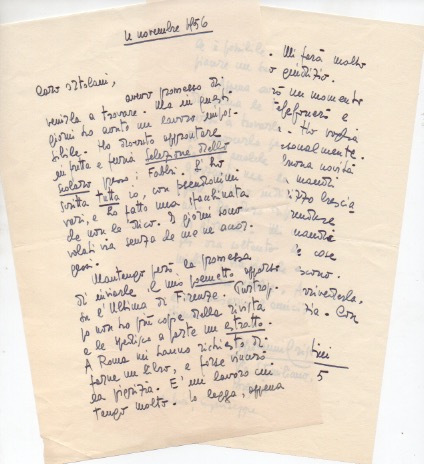 11 novembre 1956
Caro Ortolani,
avevo promesso di
venirla a trovare. Ma in questi
giorni ho avuto un lavoro impos-
sibile. Ho dovuto approntare
in tutta e furia Selezione dello
scolaro presso i Fabbri. L'ho
scritta tutta io, con pseudonimi
vari, e ho fatto una sfacchinata
che non le dico. I giorni sono
volati via senza che me ne accor-
gessi.
Mantengo però la promessa
di inviarle il mio poemetto apparso
su l'Ultima di Firenze. Purtrop-
po non ho più copie della rivista
e le spedisco a parte un estratto.
A Roma mi hanno richiesto di
farne un libro, e forse vincerò
la pigrizia. E' un lavoro cui
tengo molto. Lo legga, appena
. Mi farà molto
giudizio.
un momento
telefonerò e
. Ho voglia
sonalmente.
nuova novità
mandi
izzo brescia-
mandi
e cose
sono.
rivederla,
Con
5